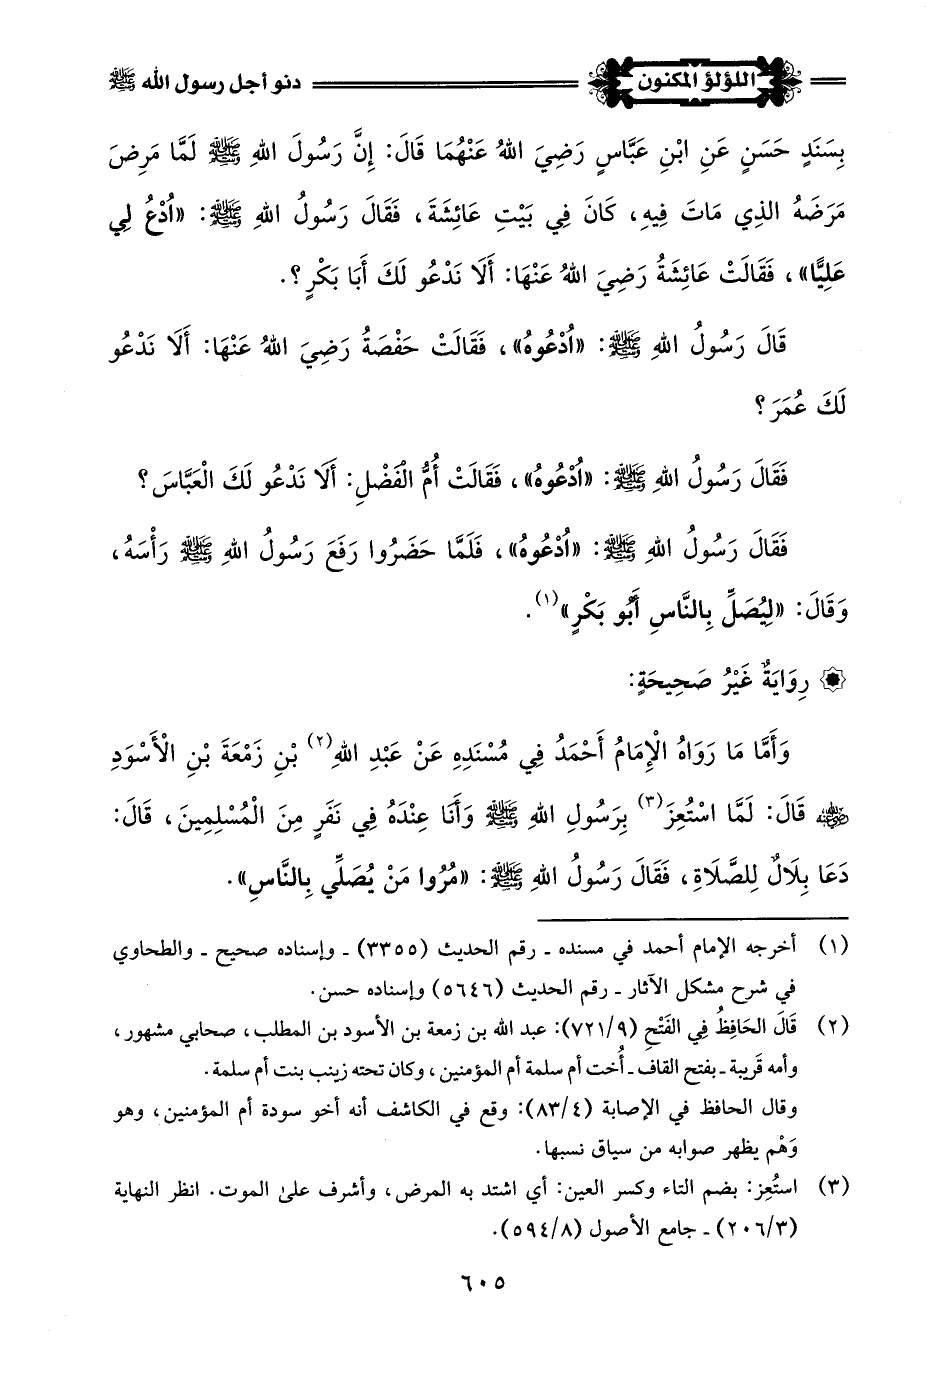 اللؤلؤ المكنون دنو أجل رسول الله ﷺ
بِسَنَدٍ حَسَنٍ عَنِ ابْنِ عَبَّاسٍ رَضِيَ اللهُ عَنْهُمَا قَالَ: إِنَّ رَسُولَ اللهِ ﷺ لَمَّا مَرِضَ
مَرَضَهُ الذِي مَاتَ فِيهِ، كَانَ فِي بَيْتِ عَائِشَةَ، فَقَالَ رَسُولُ اللهِ ﷺ: «اُدْعُ لِي
عَلِيًّا»، فَقَالَتْ عَائِشَةُ رَضِيَ اللهُ عَنْهَا: أَلَا نَدْعُو لَكَ أَبَا بَكْرٍ؟.
قَالَ رَسُولُ اللهِ ﷺ: «اُدْعُوهُ»، فَقَالَتْ حَفْصَةُ رَضِيَ اللهُ عَنْهَا: أَلَا نَدْعُو
لَكَ عُمَرَ؟
فَقَالَ رَسُولُ اللهِ ﷺ: «اُدْعُوهُ»، فَقَالَتْ أُمُّ الْفَضْلِ: أَلَا نَدْعُو لَكَ الْعَبَّاسَ؟
فَقَالَ رَسُولُ اللهِ ﷺ: «اُدْعُوهُ»، فَلَمَّا حَضَرُوا رَفَعَ رَسُولُ اللهِ ﷺ رَأْسَهُ،
وَقَالَ: «لِيُصَلِّ بِالنَّاسِ أَبُو بَكْرٍ»(١).
۞ رِوَايَةٌ غَيْرُ صَحِيحَةٍ:
وَأَمَّا مَا رَوَاهُ الْإِمَامُ أَحْمَدُ فِي مُسْنَدِهِ عَنْ عَبْدِ اللهِ(٢) بْنِ زَمْعَةَ بْنِ الْأَسْوَدِ
رضي الله عنه قَالَ: لَمَّا اسْتُعِزَ(٣) بِرَسُولِ اللهِ ﷺ وَأَنَا عِنْدَهُ فِي نَفَرٍ مِنَ الْمُسْلِمِينَ، قَالَ:
دَعَا بِلَالٌ لِلصَّلَاةِ، فَقَالَ رَسُولُ اللهِ ﷺ: «مُرُوا مَنْ يُصَلِّي بِالنَّاسِ».
(١) أخرجه الإمام أحمد في مسنده ـ رقم الحديث (٣٣٥٥) ـ وإسناده صحيح ـ والطحاوي
في شرح مشكل الآثار ـ رقم الحديث (٥٦٤٦) وإسناده حسن.
(٢) قَالَ الحَافِظُ فِي الفَتْحِ (٧٢١/٩): عبد الله بن زمعة بن الأسود بن المطلب، صحابي مشهور،
وأمه قَريبة ـ بفتح القاف ـ أُخت أم سلمة أم المؤمنين، وكان تحته زينب بنت أم سلمة.
وقال الحافظ في الإصابة (٨٣/٤): وقع في الكاشف أنه أخو سودة أم المؤمنين، وهو
وَهْم يظهر صوابه من سياق نسبها.
(٣) استُعِز: بضم التاء وكسر العين: أي اشتد به المرض، وأشرف على الموت. انظر النهاية
(٢٠٦/٣) ـ جامع الأصول (٥٩٤/٨).
٦٠٥